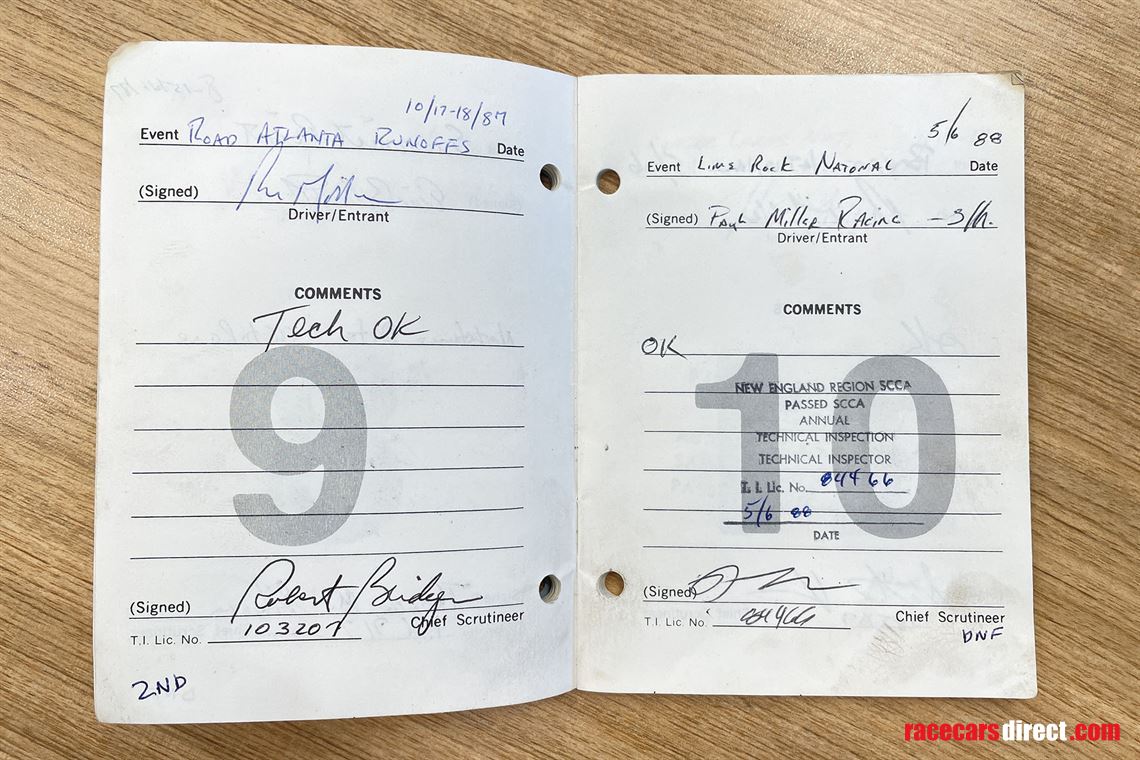 10/17-18/87
Event ROAD ATLANTA RUNOFFS Date
(Signed)
Driver/Entrant
COMMENTS
Tech OK
9
(Signed) Robert
Chief Scrutineer
T.I. Lic. No. 103207
2ND
5/6 88
Event LIME ROCK NATONAL Date
(Signed) PAUL MILLER RACING
Driver/Entrant
COMMENTS
OK
10
NEW ENGLAND REGION SCCA
PASSED SCCA
ANNUAL
TECHNICAL INSPECTION
TECHNICAL INSPECTOR
T. I. Lic. No. 84466
5/6 88
DATE
(Signed)
T.I. Lic. No. 84466 Chief Scrutineer
DNF
racecarsdirect.com